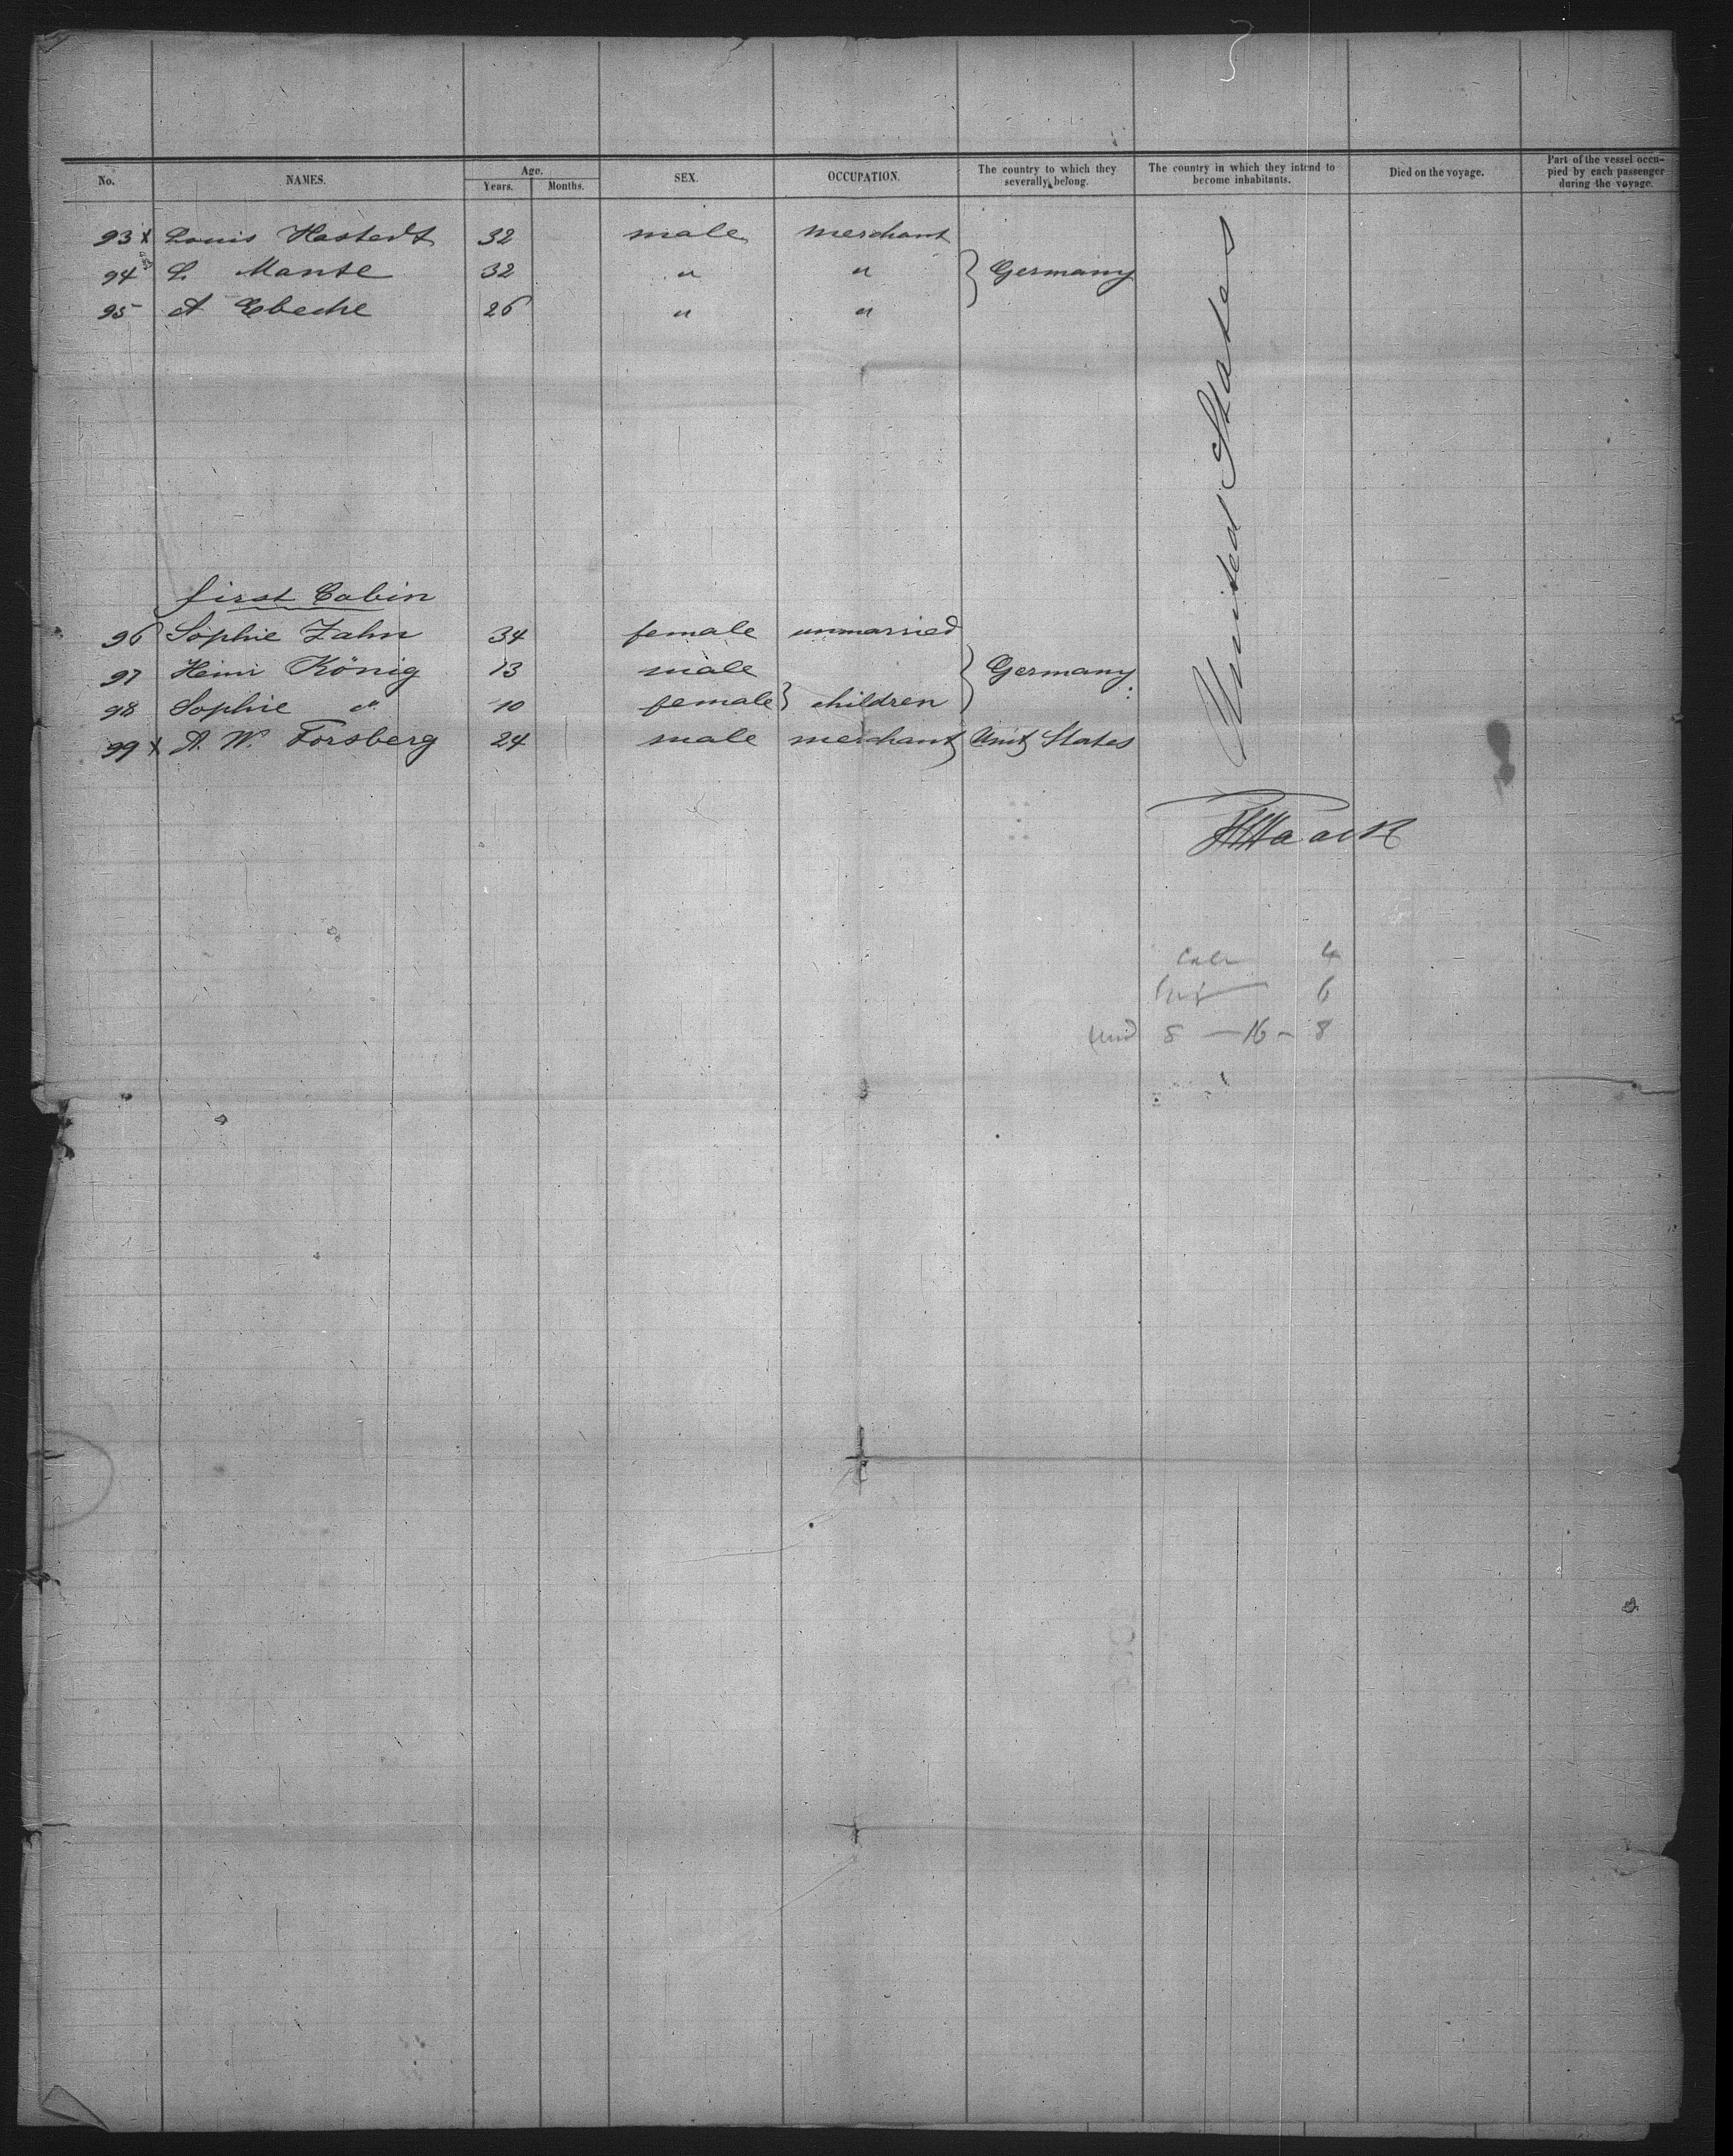 No. NAMES. Age. Years. Months. SEX. OCCUPATION. The country to which they severally belong. The country in which they intend to become inhabitants. Died on the voyage. Part of the vessel occupied by each passenger during the voyage.
93 x Louis Hastedt 32 male merchant
94 L. Mante 32 " " } Germany
95 A 26 " "
United States
first Cabin
96 Sophie Zahn 34 female unmarried
97 Heinr König 13 male } Germany
98 Sophie " 10 female } children
99 x A. W. Forsberg 24 male merchant } Unit States
4
6
8 — 16 — 8